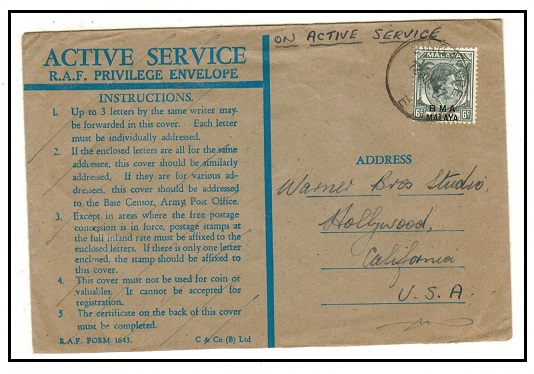 ON ACTIVE SERVICE
ACTIVE SERVICE
R.A.F. PRIVILEGE ENVELOPE
INSTRUCTIONS.
1. Up to 3 letters by the same writer may
be forwarded in this cover. Each letter
must be individually addressed.
2. If the enclosed letters are all for the same
addressee, this cover should be similarly
addressed. If they are for various ad-
dressees, this cover should be addressed
to the Base Censor, Army Post Office.
3. Except in areas where the free postage
concession is in force, postage stamps at
the full inland rate must be affixed to the
enclosed letters. If there is only one letter
enclosed, the stamp should be affixed to
this cover.
4. This cover must not be used for coin or
valuables. It cannot be accepted for
registration.
5. The certificate on the back of this cover
must be completed.
R.A.F. FORM 1643. C & Co (B) Ltd
MALAYA
BMA
MALAYA
6c 6c
ADDRESS
Warner Bros Studio,
Hollywood,
California
U.S.A.